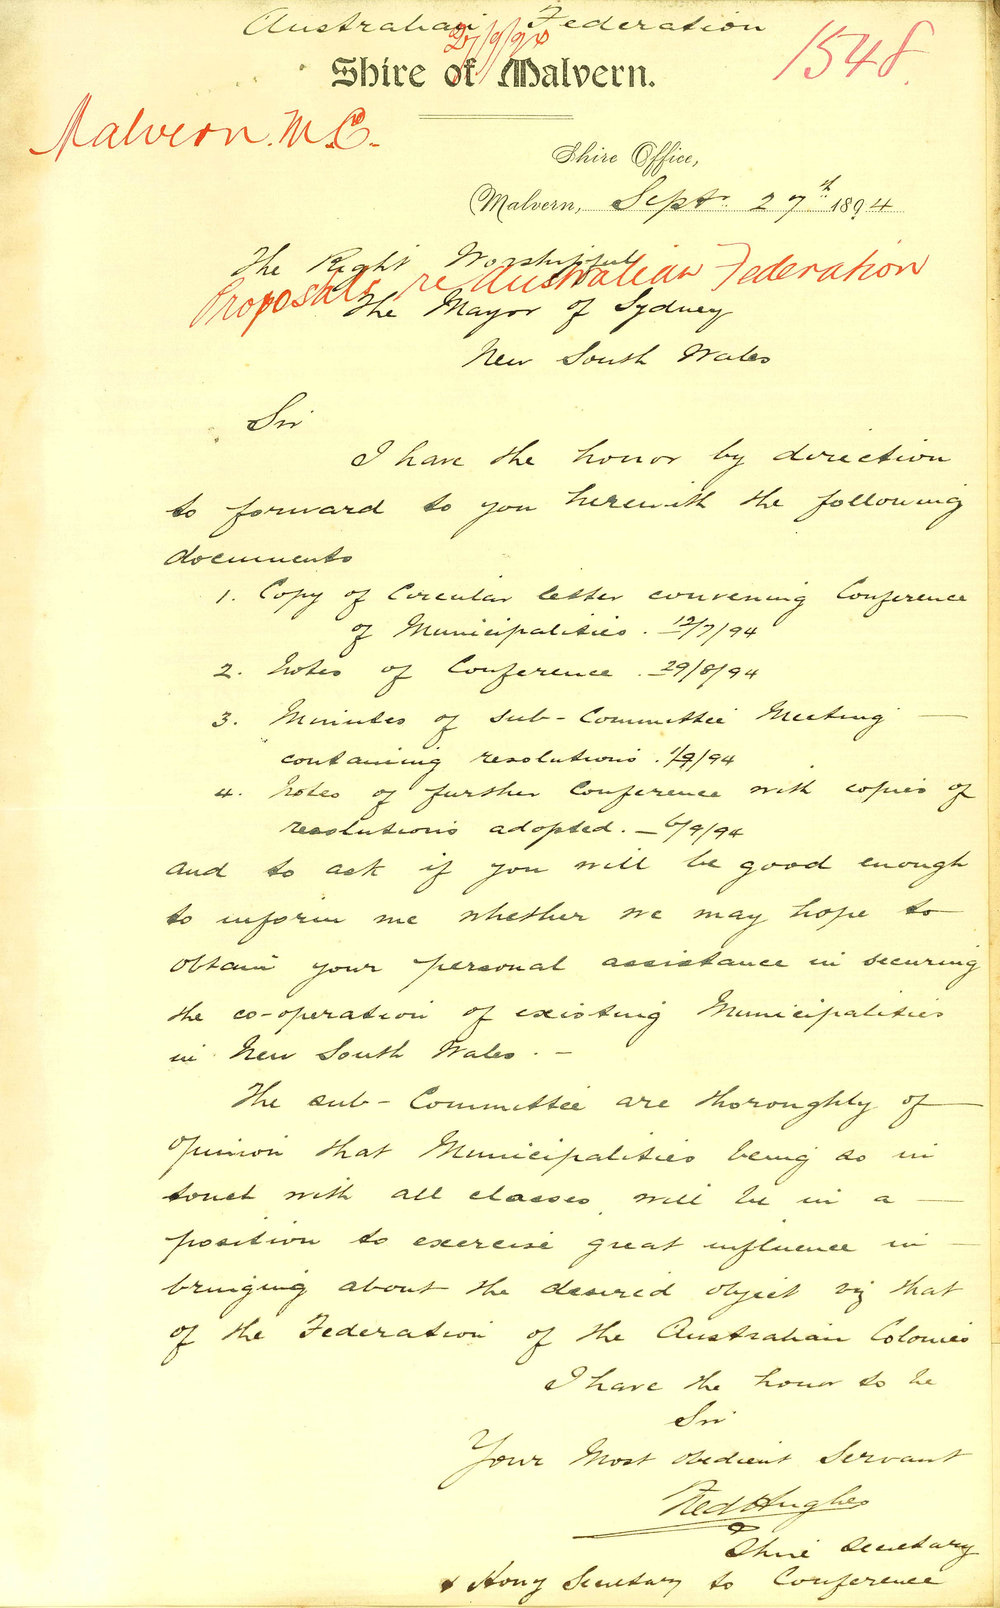 Australian Federation
1548
Shire of Malvern.
Malvern. M.C.
Shire Office,
Malvern, Sept. 27th 1894
The Right Worshipful
Proposals re Australian Federation
The Mayor of Sydney
New South Wales
Sir
I have the honor by direction
to forward to you herewith the following
documents
1. Copy of Circular letter convening Conference
of Municipalities. 12/7/94
2. Notes of Conference. 29/8/94
3. Minutes of Sub-Committee Meeting
containing resolutions. 1/9/94
4. Notes of further Conference with copies of
resolutions adopted. — 6/9/94
and to ask if you will be good enough
to inform me whether we may hope to
obtain your personal assistance in securing
the co-operation of existing Municipalities
in New South Wales. —
The sub-Committee are thoroughly of
opinion that Municipalities being so in
touch with all classes, will be in a
position to exercise great influence in
bringing about the desired object viz that
of the Federation of the Australian Colonies
I have the honor to be
Sir
Your Most obedient Servant
Fred Hughes
Shire Secretary
& Hony Secretary to Conference